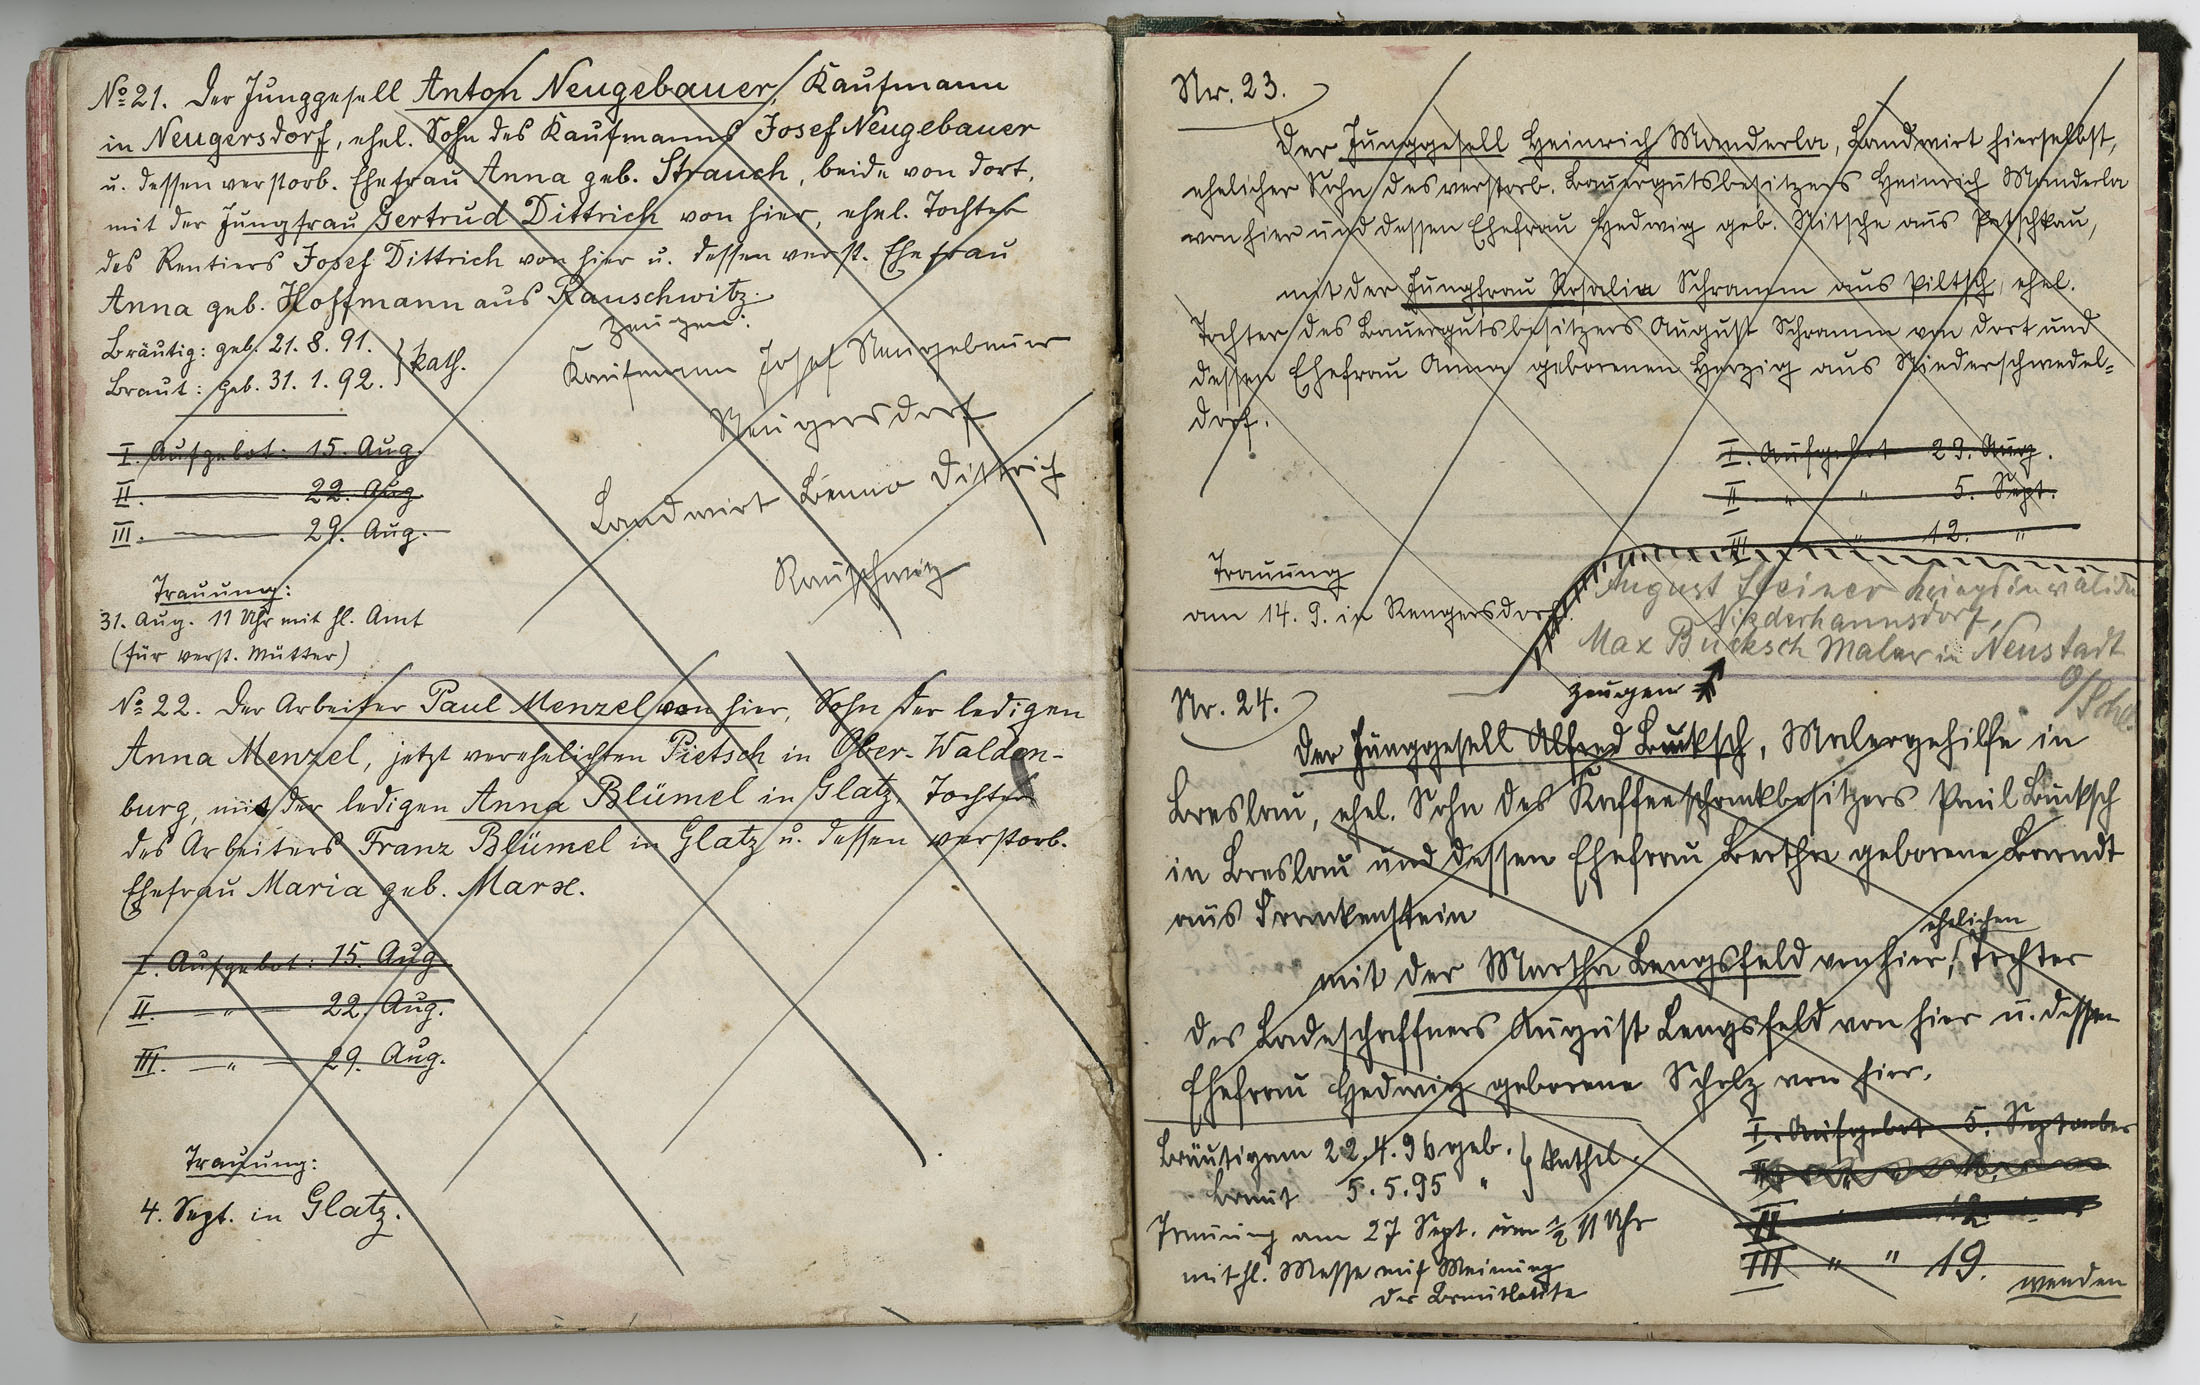 No 21. Der Junggesell Anton Neugebauer, Kaufmann
in Neugersdorf, ehel. Sohn des Kaufmanns Josef Neugebauer
u. dessen verstorb. Ehefrau Anna geb. Strauch, beide von dort,
mit der Jungfrau Gertrud Dittrich von hier, ehel. Tochter
des Rentiers Josef Dittrich von hier u. dessen verst. Ehefrau
Anna geb. Hoffmann aus Rauschwitz.
Bräutig: geb. 21. 8. 91.
Braut: geb. 31. 1. 92. } kath.
Zeugen:
Kaufmann Josef Neugebauer
Neugersdorf
Landwirt Benno Dittrich
Rauschwitz
I. Aufgebot: 15. Aug.
II. 22. Aug.
III. 29. Aug.
Trauung:
31. Aug. 11 Uhr mit hl. Amt
(für verst. Mutter)
No 22. Der Arbeiter Paul Menzel von hier, Sohn der ledigen
Anna Menzel, jetzt verehelichten Pietsch in Ober-Walden-
burg, mit der ledigen Anna Blümel in Glatz, Tochter
des Arbeiters Franz Blümel in Glatz u. dessen verstorb.
Ehefrau Maria geb. Marx.
I. Aufgebot: 15. Aug.
II. — " — 22. Aug.
III. — " — 29. Aug.
Trauung:
4. Sept. in Glatz.
Nr. 23.
Der Junggesell Heinrich Manderla, Landwirt hierselbst,
ehelicher Sohn des verstorb. Bauergutsbesitzers Heinrich Manderla
von hier und dessen Ehefrau Hedwig geb. Nitsche aus Patschkau,
mit der Jungfrau Rosalia Schramm aus Piltsch, ehel.
Tochter des Bauergutsbesitzers August Schramm von dort und
dessen Ehefrau Anna geborenen Herzig aus Niederschwedel-
dorf.
I. Aufgebot 29. Aug.
II " " 5. Sept.
III " 12. "
Trauung
am 14. 9. in Rengersdorf.
August Steiner Kriegsinvalide
Niederhannsdorf,
Max Bucksch Maler in Neustadt
O/Schl.
Zeugen
Nr. 24.
Der Junggesell Alfred Bucksch, Malergehilfe in
Breslau, ehel. Sohn des Kaffeeschankbesitzers Paul Bucksch
in Breslau und dessen Ehefrau Bertha geborene Brandt
aus Frankenstein
mit der Martha Lengsfeld von hier, ehelichen Tochter
des Ladeschaffners August Lengsfeld von hier u. dessen
Ehefrau Hedwig geborene Scholz von hier.
Bräutigam 22. 4. 96 geb. } kathol.
Braut 5. 5. 95 "
Trauung am 27 Sept. um 1/2 11 Uhr
mit hl. Messe auf Meinung
der Brautleute
I. Aufgebot 5. September
II 12.
III " " 19.
wenden